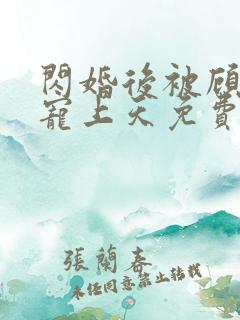 閃婚後被顧
寵上天免費
張蘭春
未經同意禁止轉載